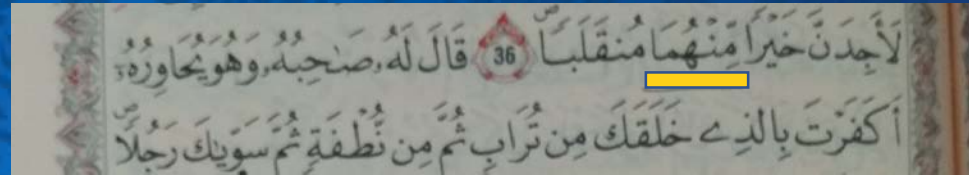 لَأَجِدَنَّ خَيْراٗ مِّنْهُمَا مُنقَلَباٗۖ 36 قَالَ لَهُۥ صَٰحِبُهُۥ وَهُوَ يُحَاوِرُهُۥٓ
أَكَفَرْتَ بِالذِے خَلَقَكَ مِن تُرَابٖ ثُمَّ مِن نُّطْفَةٖ ثُمَّ سَوّۭيٰكَ رَجُلاٗۖ